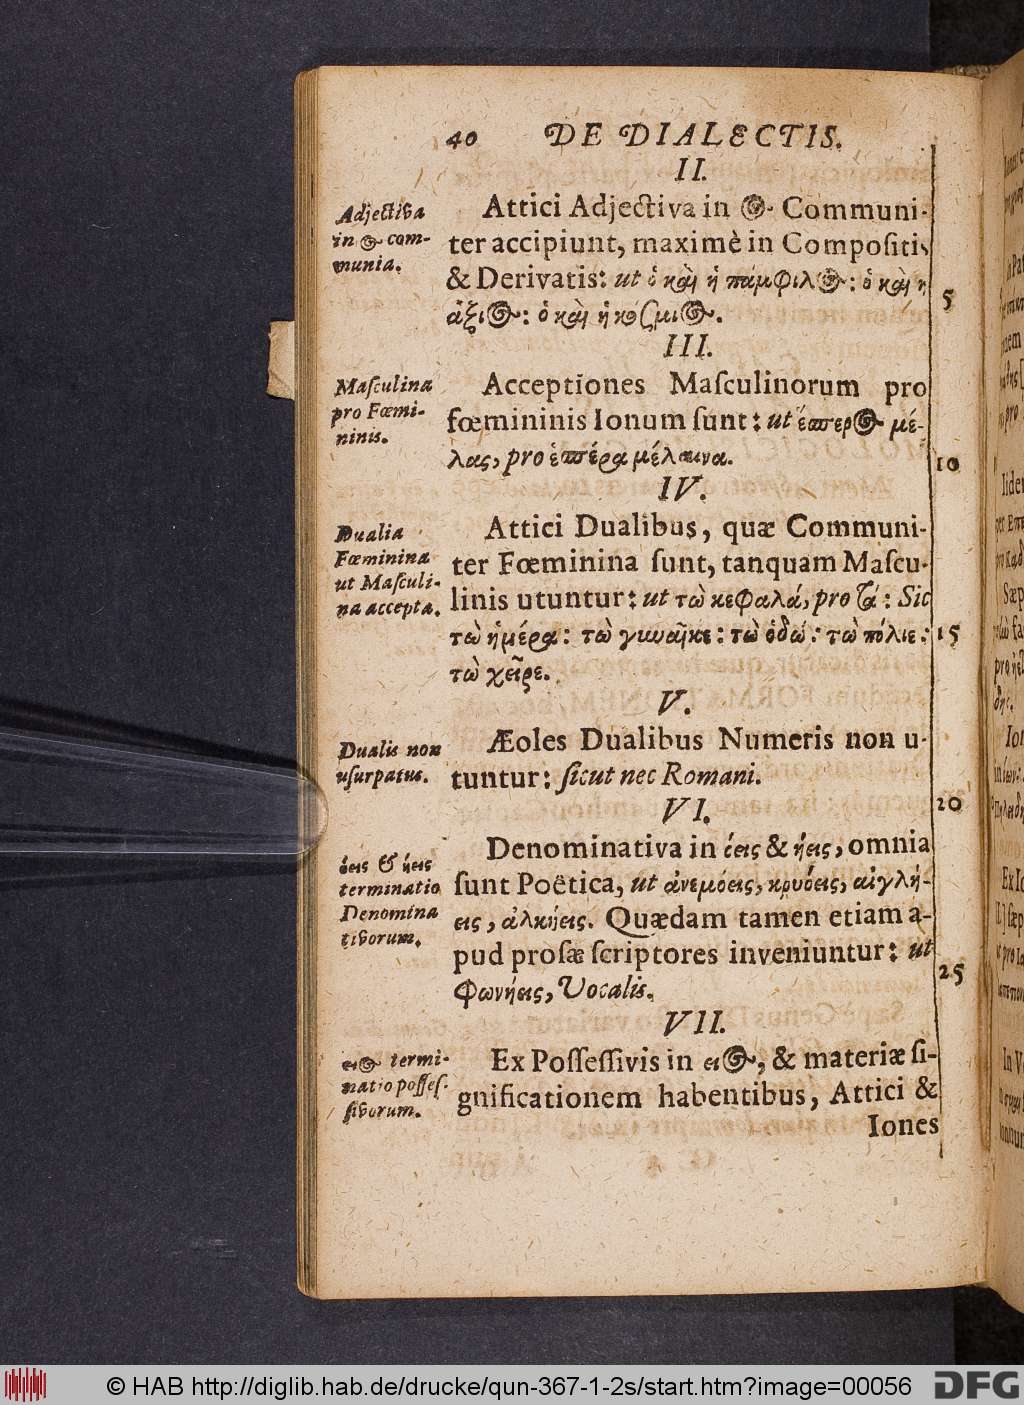 40 DE DIALECTIS.
II.
Adjectiva
in ος com-
munia.
Attici Adjectiva in ος Communi-
ter accipiunt, maximè in Compositis
& Derivatis: ut ὁ καὶ ἡ πάμφιλος: ὁ καὶ ἡ
ἄξιος: ὁ καὶ ἡ κόσμιος.
5
III.
Masculina
pro Fœmi-
ninis.
Acceptiones Masculinorum pro
fœmininis Ionum sunt: ut ἕσπερος μέ-
λας, pro ἑσπέρα μέλαινα.
10
IV.
Dualia
Fœminina
ut Masculi-
na accepta.
Attici Dualibus, quæ Communi-
ter Fœminina sunt, tanquam Mascu-
linis utuntur: ut τὼ κεφαλά, pro τά: Sic
τὼ ἡμέρα: τὼ γυναῖκε: τὼ ὁδώ: τὼ πόλιε:
τὼ χεῖρε.
15
V.
Dualis non
usurpatus.
Æoles Dualibus Numeris non u-
tuntur: sicut nec Romani.
VI.
20
όεις & ήεις
terminatio
Denomina
tivorum.
Denominativa in όεις & ήεις, omnia
sunt Poëtica, ut ἀνεμόεις, κρυόεις, αἰγλή-
εις, ἀλκήεις. Quædam tamen etiam a-
pud prosæ scriptores inveniuntur: ut
φωνήεις, Vocalis.
25
VII.
ειος termi-
natio posses-
sivorum.
Ex Possessivis in ειος, & materiæ si-
gnificationem habentibus, Attici &
Iones
© HAB http://diglib.hab.de/drucke/qun-367-1-2s/start.htm?image=00056
DFG